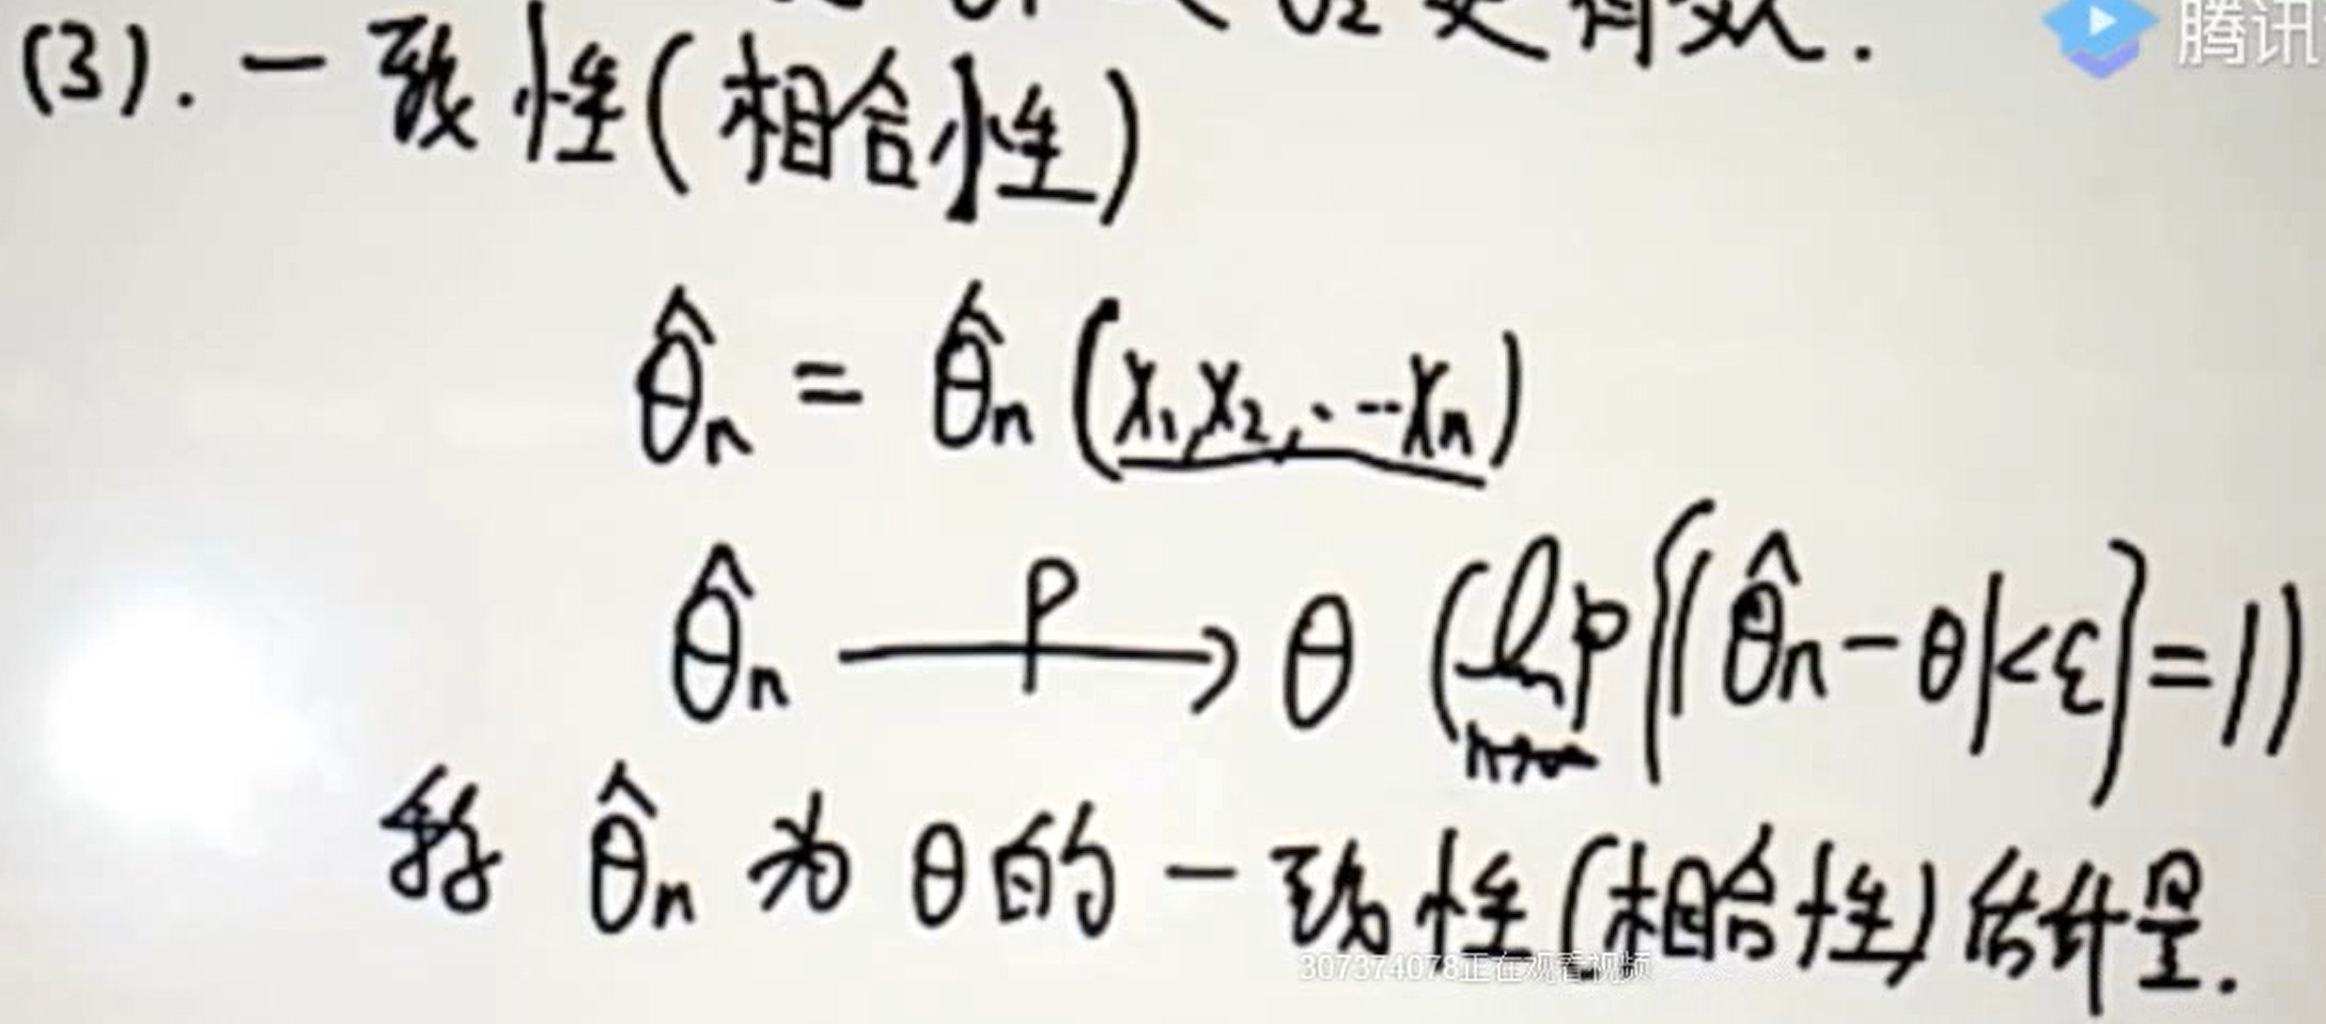 更有效.
腾讯
(3). 一致性(相合性)
θ̂n = θ̂n (X1,X2,...Xn)
θ̂n —P→ θ (lim P{|θ̂n-θ|<ε}=1)
n→∞
称 θ̂n 为 θ的一致性(相合性)估计量.
307374078正在观看视频